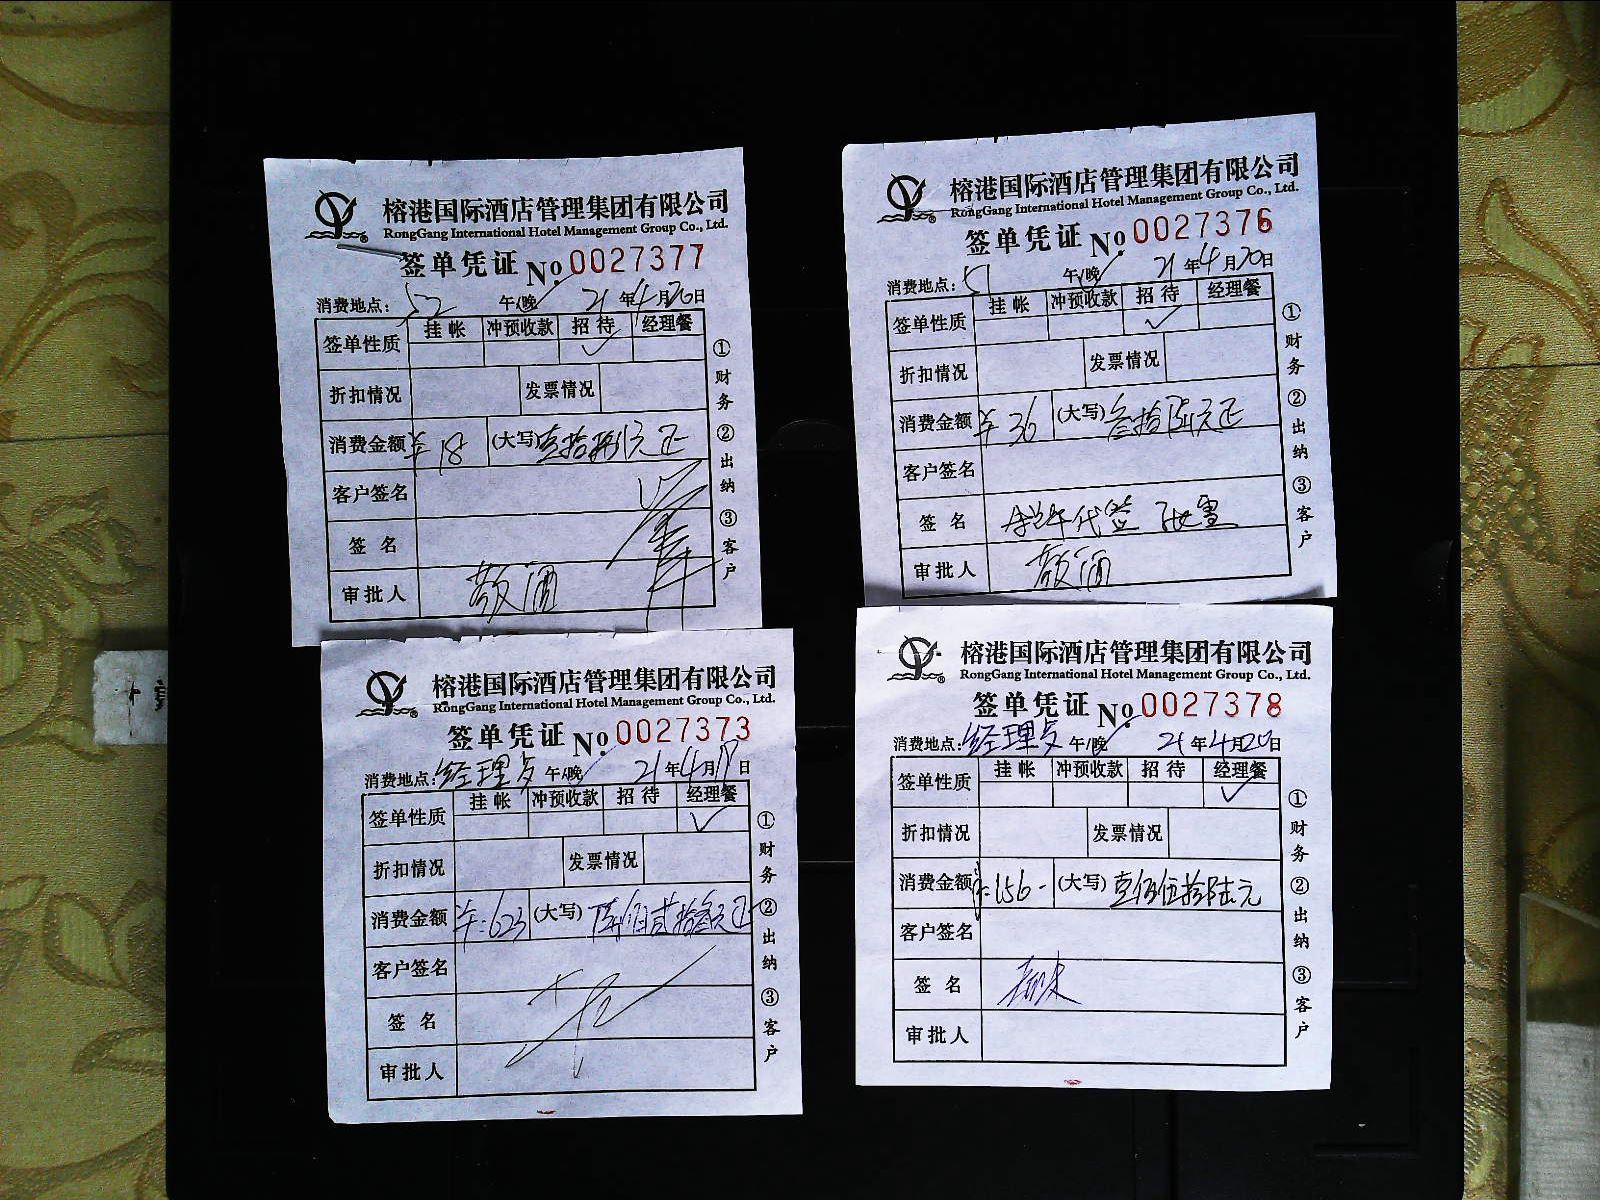 榕港国际酒店管理集团有限公司
RongGang International Hotel Management Group Co., Ltd.
签单凭证 No. 0027377
消费地点: 52 午/晚 21年4月20日
签单性质 挂帐 冲预收款 招待 经理餐
✓
折扣情况 发票情况
消费金额 ¥18 (大写) 壹拾捌元正
客户签名
签名
审批人 敬酒
①财务 ②出纳 ③客户
榕港国际酒店管理集团有限公司
RongGang International Hotel Management Group Co., Ltd.
签单凭证 No. 0027376
消费地点: 51 午/晚 21年4月20日
签单性质 挂帐 冲预收款 招待 经理餐
✓
折扣情况 发票情况
消费金额 ¥36 (大写) 叁拾陆元正
客户签名
签名 代签
审批人 敬酒
①财务 ②出纳 ③客户
榕港国际酒店管理集团有限公司
RongGang International Hotel Management Group Co., Ltd.
签单凭证 No. 0027373
消费地点: 经理 午/晚 21年4月19日
签单性质 挂帐 冲预收款 招待 经理餐
✓
折扣情况 发票情况
消费金额 ¥:623 (大写) 陆佰贰拾叁元正
客户签名
签名
审批人
①财务 ②出纳 ③客户
榕港国际酒店管理集团有限公司
RongGang International Hotel Management Group Co., Ltd.
签单凭证 No. 0027378
消费地点: 经理 午/晚 21年4月20日
签单性质 挂帐 冲预收款 招待 经理餐
✓
折扣情况 发票情况
消费金额 ¥:156- (大写) 壹佰伍拾陆元
客户签名
签名
审批人
①财务 ②出纳 ③客户